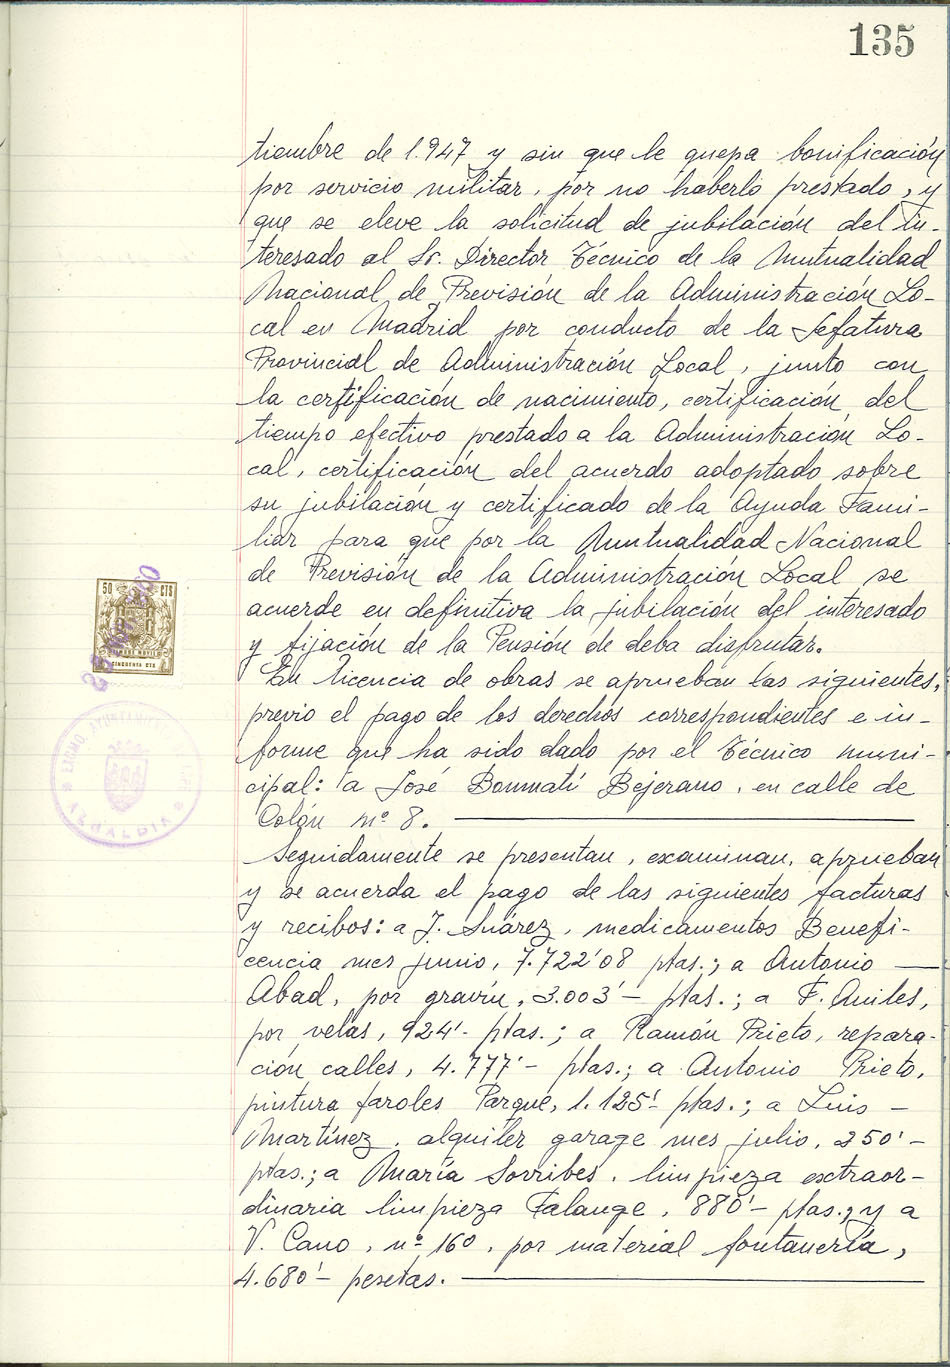 135
tiembre de 1.947 y sin que le quepa bonificación
por servicio militar, por no haberlo prestado, y
que se eleve la solicitud de jubilación del in-
teresado al Sr. Director Técnico de la Mutualidad
Nacional de Previsión de la Administración Lo-
cal en Madrid por conducto de la Jefatura
Provincial de Administración Local, junto con
la certificación de nacimiento, certificación del
tiempo efectivo prestado a la Administración Lo-
cal, certificación del acuerdo adoptado sobre
su jubilación y certificado de la Ayuda Fami-
liar para que por la Mutualidad Nacional
de Previsión de la Administración Local se
acuerde en definitiva la jubilación del interesado
y fijación de la Pensión de deba disfrutar.
En licencia de obras se aprueban las siguientes,
previo el pago de los derechos correspondientes e in-
forme que ha sido dado por el Técnico muni-
cipal: a José Bonmatí Bejerano, en calle de
Colón nº 8.
Seguidamente se presentan, examinan, aprueban
y se acuerda el pago de las siguientes facturas
y recibos: a J. Suárez, medicamentos Benefi-
cencia mes junio, 7.722'08 ptas.; a Antonio
Abad, por gravín, 3.003'- ptas.; a F. Aniles,
por velas, 924'- ptas.; a Ramón Prieto, repara-
ción calles, 4.777'- ptas.; a Antonio Prieto,
pintura faroles Parque, 1.125'- ptas.; a Luis -
Martínez, alquiler garage mes julio, 250'-
ptas.; a María Sorribes, limpieza extraor-
dinaria limpieza Falange, 880'- ptas., y a
V. Cano, nº 160, por material fontanería,
4.680'- pesetas.
50 CTS
CINCUENTA CTS
EXCMO. AYUNTAMIENTO
ALCALDIA